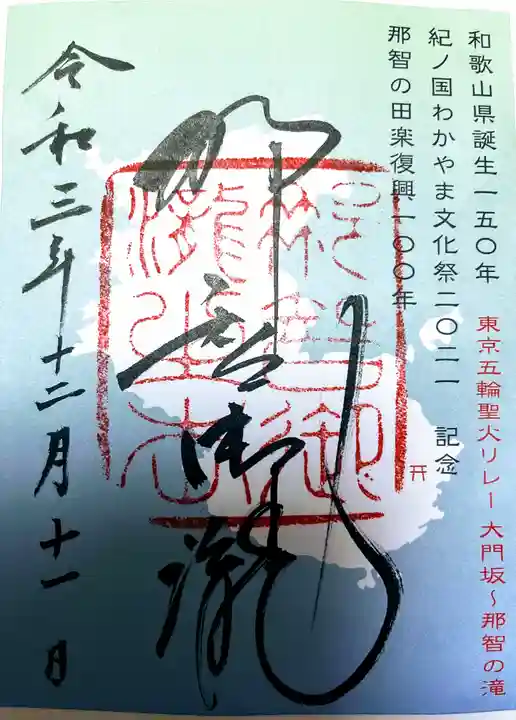 和歌山県誕生一五〇年 東京五輪聖火リレー 大門坂～那智の滝
紀ノ国わかやま文化祭二〇二一 記念
那智の田楽復興一〇〇年
那智御瀧
令和三年十二月十一日